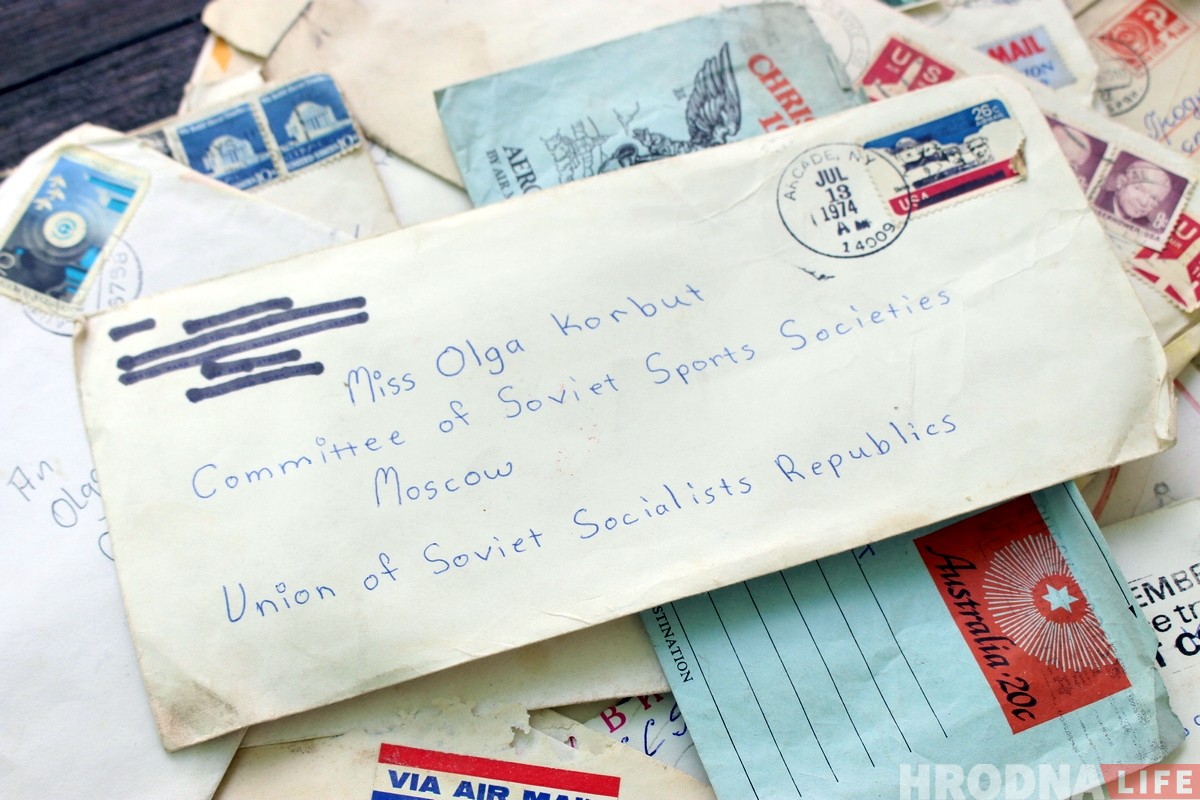 US
MAIL
CHRIS
AERO
BY AIR
10c
26c
USA
ARCADE, NY
JUL
13
1974
AM
14009
8c
Miss Olga Korbut
Committee of Soviet Sports Societies
Moscow
Union of Soviet Socialists Republics
An
Olga
STINATION
Australia 20c
EMBE
e tr
VIA AIR MAI
HRODNA LIFE